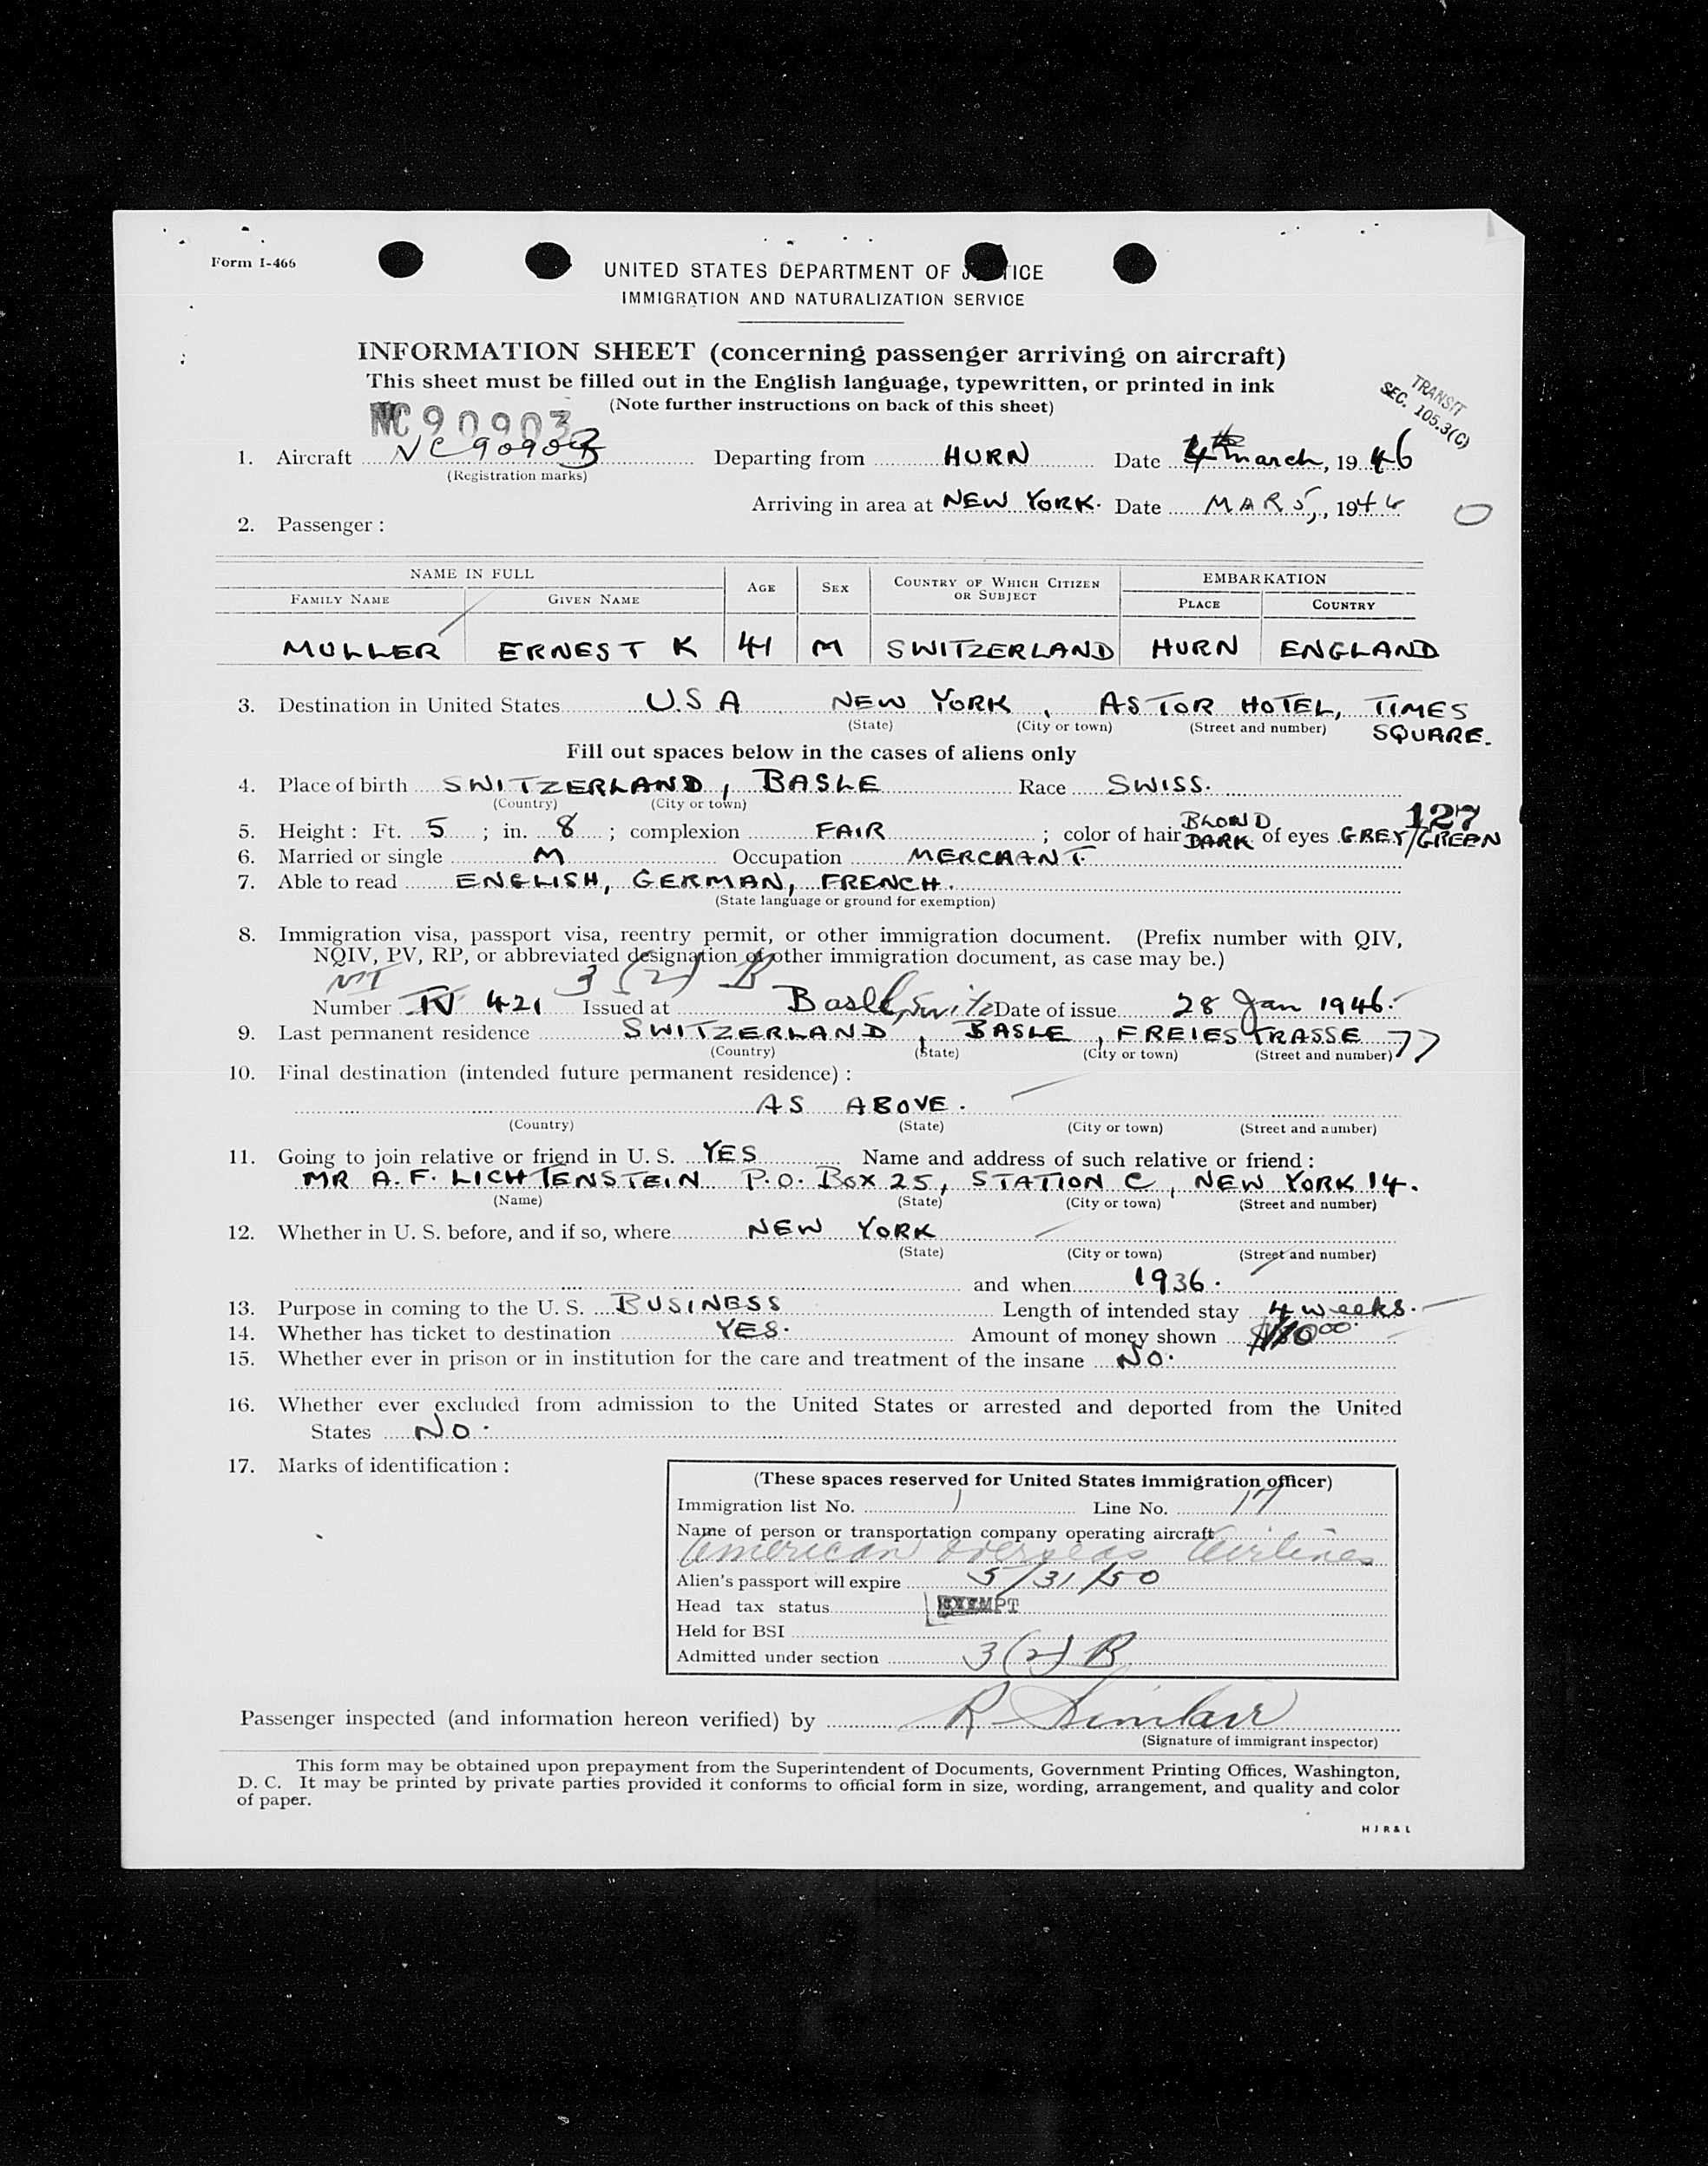 Form I-466
UNITED STATES DEPARTMENT OF J TICE
IMMIGRATION AND NATURALIZATION SERVICE
INFORMATION SHEET (concerning passenger arriving on aircraft)
This sheet must be filled out in the English language, typewritten, or printed in ink
(Note further instructions on back of this sheet)
TRANSIT
SEC. 105.3(C)
NC90903
1. Aircraft NC90903 Departing from HURN Date 4th March, 1946
(Registration marks)
Arriving in area at NEW YORK. Date MAR 5, 1946
2. Passenger :
NAME IN FULL AGE SEX COUNTRY OF WHICH CITIZEN OR SUBJECT EMBARKATION
FAMILY NAME GIVEN NAME PLACE COUNTRY
MULLER ERNEST K 41 M SWITZERLAND HURN ENGLAND
3. Destination in United States U.S A NEW YORK, ASTOR HOTEL, TIMES
(State) (City or town) (Street and number) SQUARE.
Fill out spaces below in the cases of aliens only
4. Place of birth SWITZERLAND, BASLE Race SWISS.
(Country) (City or town)
127
5. Height : Ft. 5 ; in. 8 ; complexion FAIR ; color of hair BLOND DARK of eyes GREY/GREEN
6. Married or single M Occupation MERCHANT.
7. Able to read ENGLISH, GERMAN, FRENCH.
(State language or ground for exemption)
8. Immigration visa, passport visa, reentry permit, or other immigration document. (Prefix number with QIV,
NQIV, PV, RP, or abbreviated designation of other immigration document, as case may be.)
3 (2) B
Number 421 Issued at Basle, Switz Date of issue 28 Jan 1946.
9. Last permanent residence SWITZERLAND, BASLE, FREIESTRASSE 77
(Country) (State) (City or town) (Street and number)
10. Final destination (intended future permanent residence) :
AS ABOVE.
(Country) (State) (City or town) (Street and number)
11. Going to join relative or friend in U. S. YES Name and address of such relative or friend :
MR A.F. LICHTENSTEIN P.O. BOX 25, STATION C, NEW YORK 14.
(Name) (State) (City or town) (Street and number)
12. Whether in U. S. before, and if so, where NEW YORK
(State) (City or town) (Street and number)
and when 1936.
13. Purpose in coming to the U. S. BUSINESS Length of intended stay 4 weeks.
14. Whether has ticket to destination YES. Amount of money shown
15. Whether ever in prison or in institution for the care and treatment of the insane NO.
16. Whether ever excluded from admission to the United States or arrested and deported from the United
States NO.
17. Marks of identification :
(These spaces reserved for United States immigration officer)
Immigration list No. 1 Line No. 17
Name of person or transportation company operating aircraft
American Overseas Airlines
Alien's passport will expire 5/31/50
Head tax status EXEMPT
Held for BSI
Admitted under section 3(2) B
Passenger inspected (and information hereon verified) by R Sinclair
(Signature of immigrant inspector)
This form may be obtained upon prepayment from the Superintendent of Documents, Government Printing Offices, Washington,
D. C. It may be printed by private parties provided it conforms to official form in size, wording, arrangement, and quality and color
of paper.
H J R & L